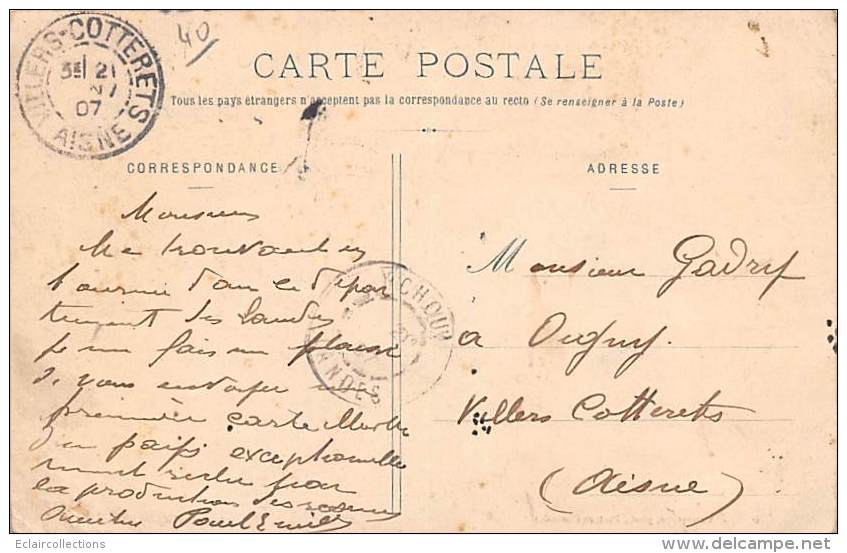 VILLERS-COTTERETS
3E 21
2
07
AISNE
40
CARTE POSTALE
Tous les pays étrangers n'acceptent pas la correspondance au recto (Se renseigner à la Poste)
CORRESPONDANCE
Monsieur
Me trouvant en
tournée dans ce dépar
tement des Landes
je me fais un plaisir
de vous envoyer une
première carte
du pays exceptionnelle
ment riche par
la production des
Paul Emile
ADRESSE
Monsieur Gadry
à Oigny
Villers Cotterets
(Aisne)
Eclaircollections
delcampe.net